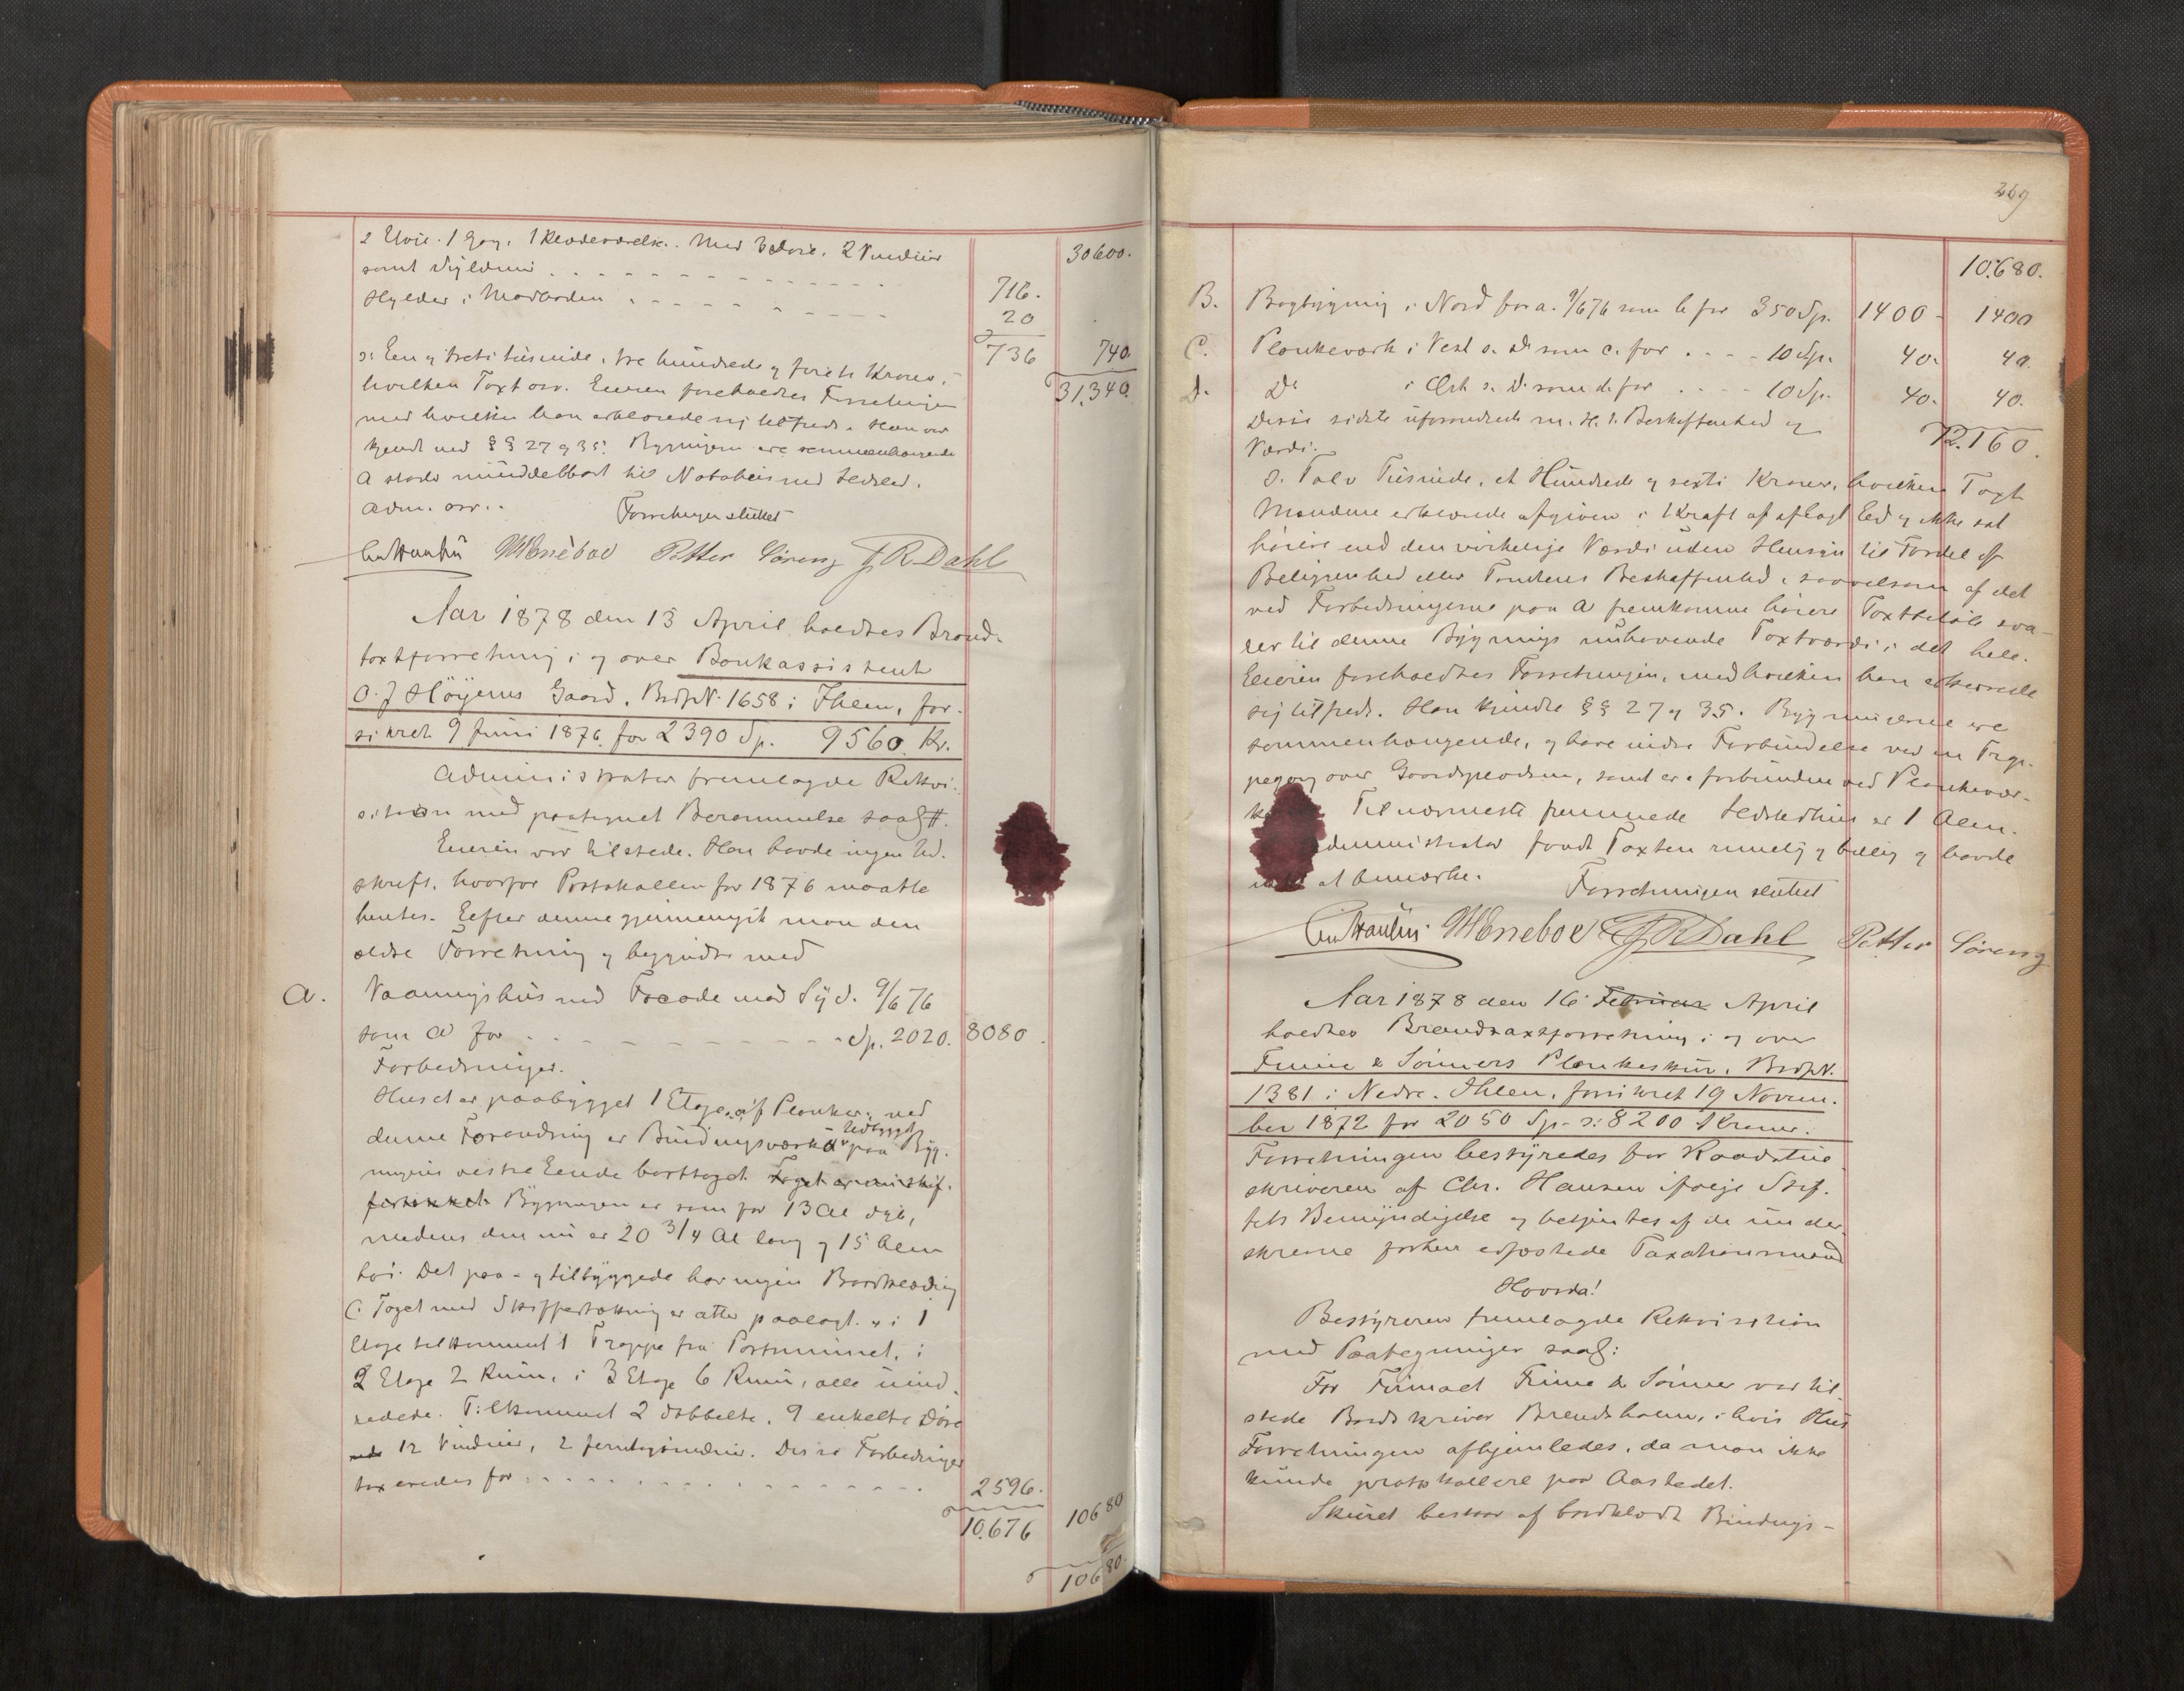 30600.
samt
Hylder i Madboden
716.
20
736
740.
s: Een og treti tusinde, tre hundrede og forti Kroner,
hvilken Taxt osv. Eieren foreholdtes Forretningen
31,340.
med hvilken han erklærede sig tilfreds. Han var
kjendt med §§ 27 og 35. Bygningerne ere sammenhængende
A støder umiddelbart til Nabohus ved Ildsled.
Adm. osv.
Forretningen sluttet
Petter Søreng JR Dahl
Aar 1878 den 13 April holdtes Brand-
taxtforretning i og over Bankassistent
O. J Höyems Gaard, BrdpN. 1658 i Ihlen, for-
sikret 9 Juni 1876 for 2390 Sp. 9560 Kr.
Administrator fremlagde Rekvi-
sition med paategnet Berammelse saal. #.
Eieren var tilstede. Han havde ingen Ud-
skrift, hvorfor Protokollen for 1876 maatte
hentes. Eefter denne gjennemgik man den
ældre Forretning og begyndte med
A. Vaaningshus med Facade mod Syd. 9/6 76
som A for Sp. 2020. 8080.
Forbedringer.
Huset er paabygget 1 Etage af Planker; ved
Udbygget
denne Forandring er Bindingsværket paa Byg-
ningens vestre Eende borttaget. Taget er
Bygningen er som før 13 Al dyb,
medens den nu er 20 3/4 Al lang og 15 Alen
høi. Det paa- og tilbyggede har ingen Bordklædning
(: Taget med Skiffertækning er atter paalagt. I 1
Etage tilkommet 1 Trappe fra Portrummet, i
2 Etage 2 Rum, i 3 Etage 6 Rum, alle uind-
redede. Tilkommet 2 dobbelte, 9 enkelte Døre
12 Vinduer, 2 Disse Forbedringer
taxeredes for 2596.
10.676 10680
10680.
269
10.680.
B. Bagbygning i Nord for a. 9/6 76 som b for 350 Sp. 1400 - 1400
C. Plankeværk i Vest s. D. som c. for 10 Sp. 40. 40.
D. Do i Øst s. D. som d. for 10 Sp. 40. 40.
Disse sidste uforandrede m. H. t. Beskaffenhed og
12.160.
Værdi.
s. Tolv Tusinde, et Hundrede og sexti Kroner, hvilken Taxt
Mændene erklærede afgiven i Kraft af aflagt Eed og ikke sat
høiere end den virkelige Værdi uden Hensyn til Fordel af
Beligenhed eller Tomtens Beskaffenhed, saavelsom af det
ved Forbedringerne paa A fremkomne høiere Taxtbeløb sva-
rer til denne Bygnings nuhavende Taxtværdi i det hele.
Eieren foreholdtes Forretningen, med hvilken han erklærede
sig tilfreds. Han kjendte §§ 27 og 35. Bygningerne ere
sammenhængende, og have indre Forbindelse ved en Trap-
pegang over Gaardspladsen, samt ere forbundne ved Plankevær-
Til nærmeste fremmede Ildstedhus er 1 Alen.
Administrator fandt Taxten rimelig og billig og havde
intet at bemærke.
Forretningen sluttet
JR Dahl Petter Søreng
Aar 1878 den 16 Februar April
holdtes Brandtaxtforretning i og over
Finne & Sönners Plankeskur, BrdpN.
1381 i Nedre Ihlen, forsikret 19 Novem-
ber 1872 for 2050 Sp. s: 8200 Kroner.
Forretningen bestyredes for Raadstue-
skriveren af Chr. Hansen ifølge Stif-
tets Bemyndigelse og betjentes af de under-
skrevne forhen edfæstede Taxationsmænd
Hvorda!
Bestyreren fremlagde Rekvisition
med Paategninger saal:
For Firmaet Finne & Sönner var til-
stede Bordskriver Brendsholm, i hvis Hus
Forretningen afhjemledes, da man ikke
kunde protokollere paa Aastedet.
Skuret bestaar af bordklædt Bindings-